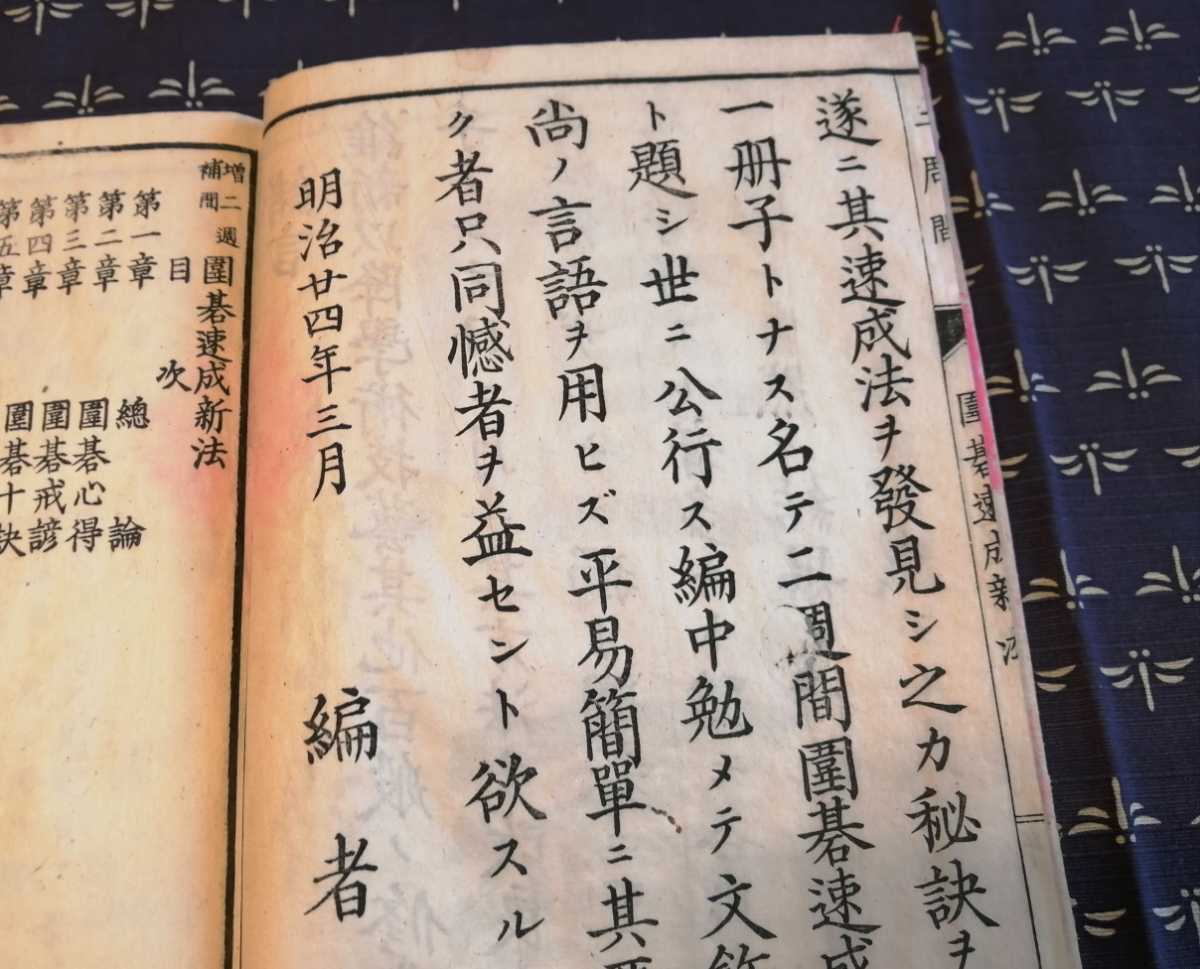 遂ニ其速成法ヲ發見シ之カ秘訣ヲ
一册子トナス名テ二週間圍碁速成
ト題シ世ニ公行ス編中勉メテ文飾
尚ノ言語ヲ用ヒズ平易簡單ニ其
ク者只同憾者ヲ益セント欲スル
明治廿四年三月
編者
增補二週間圍碁速成新法
目次
第一章 總論
第二章 圍碁心得
第三章 圍碁戒諺
第四章 圍碁十訣
第五章